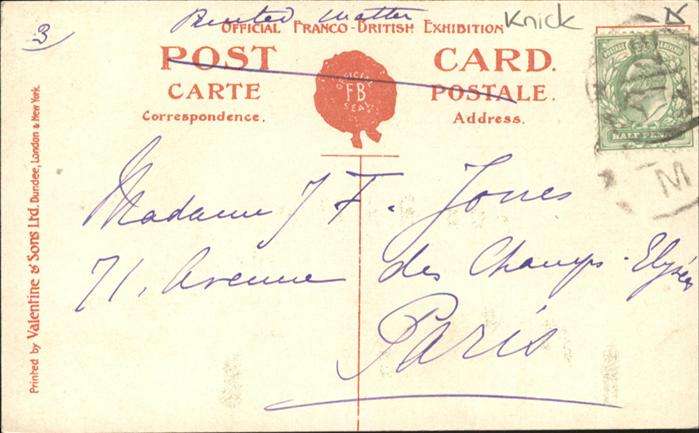 3
Printed Matter
Knick
OFFICIAL FRANCO-BRITISH EXHIBITION
POST CARD.
CARTE POSTALE.
Correspondence. Address.
OFFICIAL
FB
SEAL
HALF PENNY
M
Madame J F. Jones
71. Avenue des Champs-Elysées
Paris
Printed by Valentine & Sons Ltd. Dundee, London & New York.